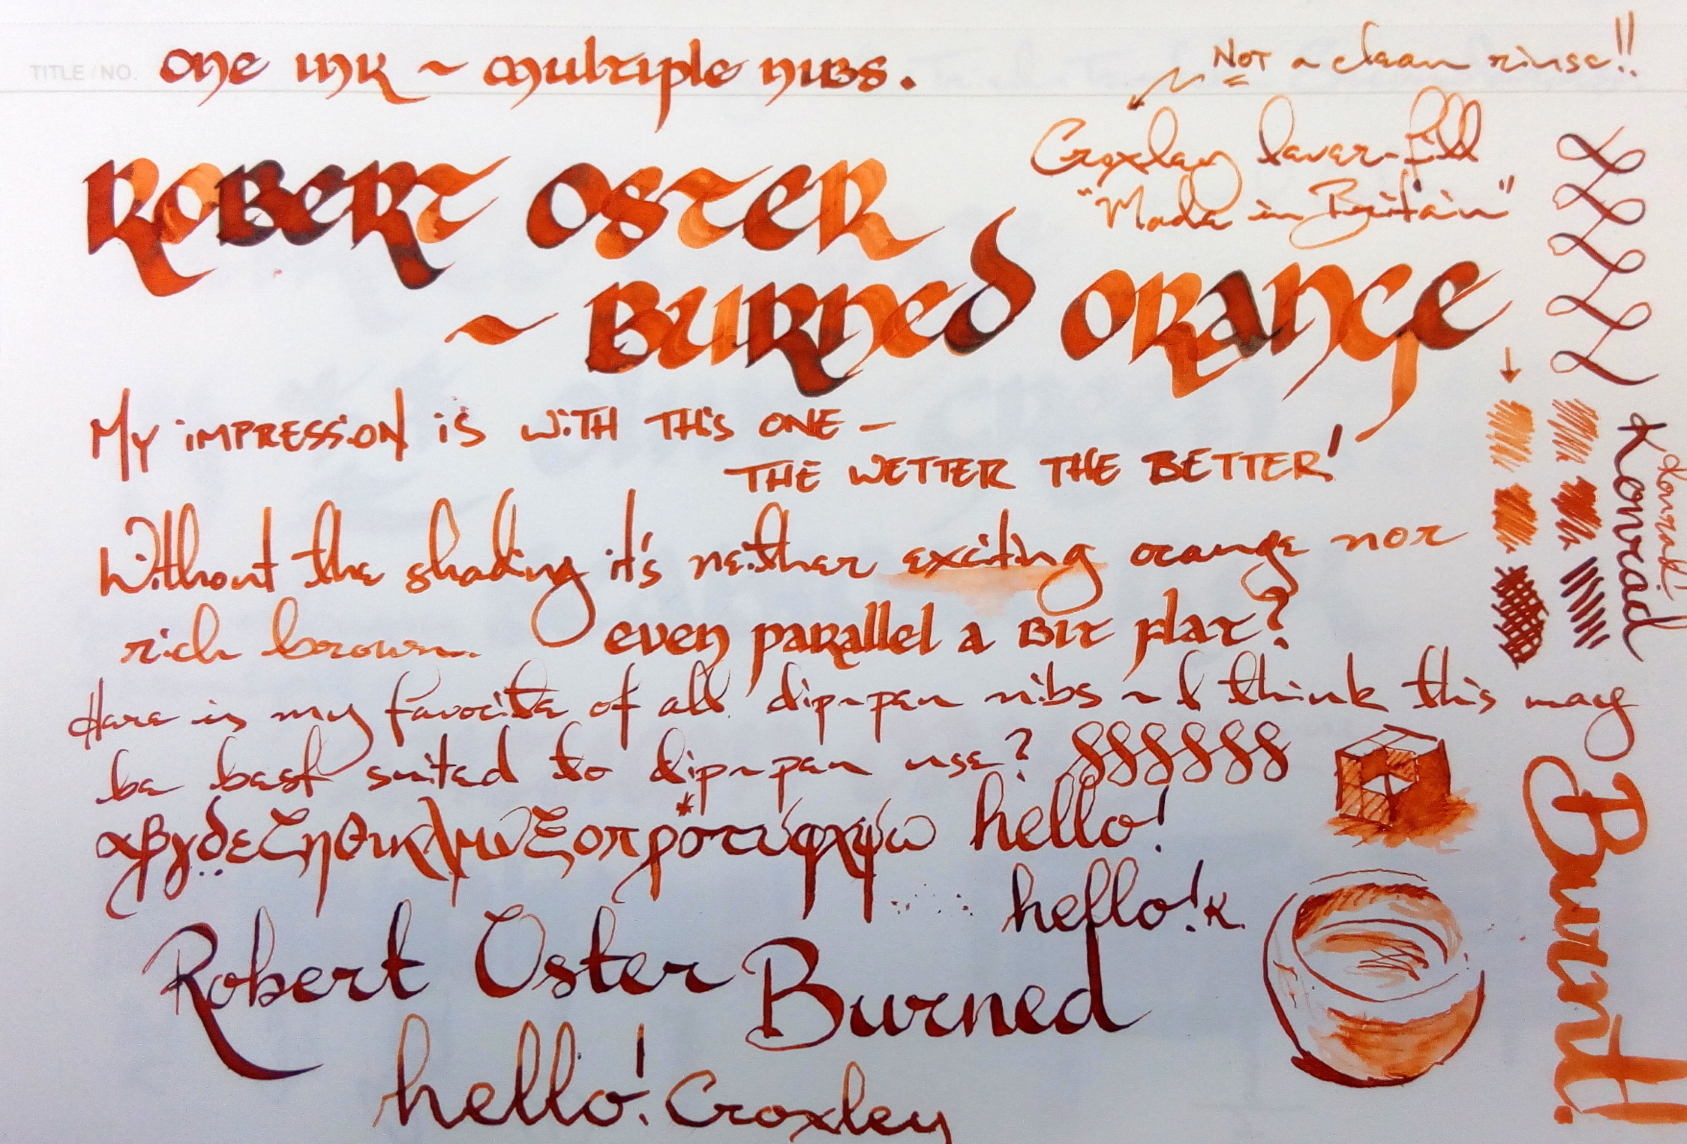 TITLE / NO.
one ink ~ multiple nibs.
NOT a clean rinse!!
Croxley lever-fill
"Made in Britain"
ROBERT OSTER
~ BURNED ORANGE
MY IMPRESSION IS WITH THIS ONE —
THE WETTER THE BETTER!
Without the shading it's neither exciting orange nor
rich brown. even parallel a bit flat?
Here is my favorite of all dip-pen nibs ~ I think this may
be best suited to dip-pen use? §§§§§§§
αβγδεζηθικλμνξοπρ*στύφχψω hello!
hello! K.
Robert Oster Burned
hello! Croxley
Konrad
Konrad!
Burnt!